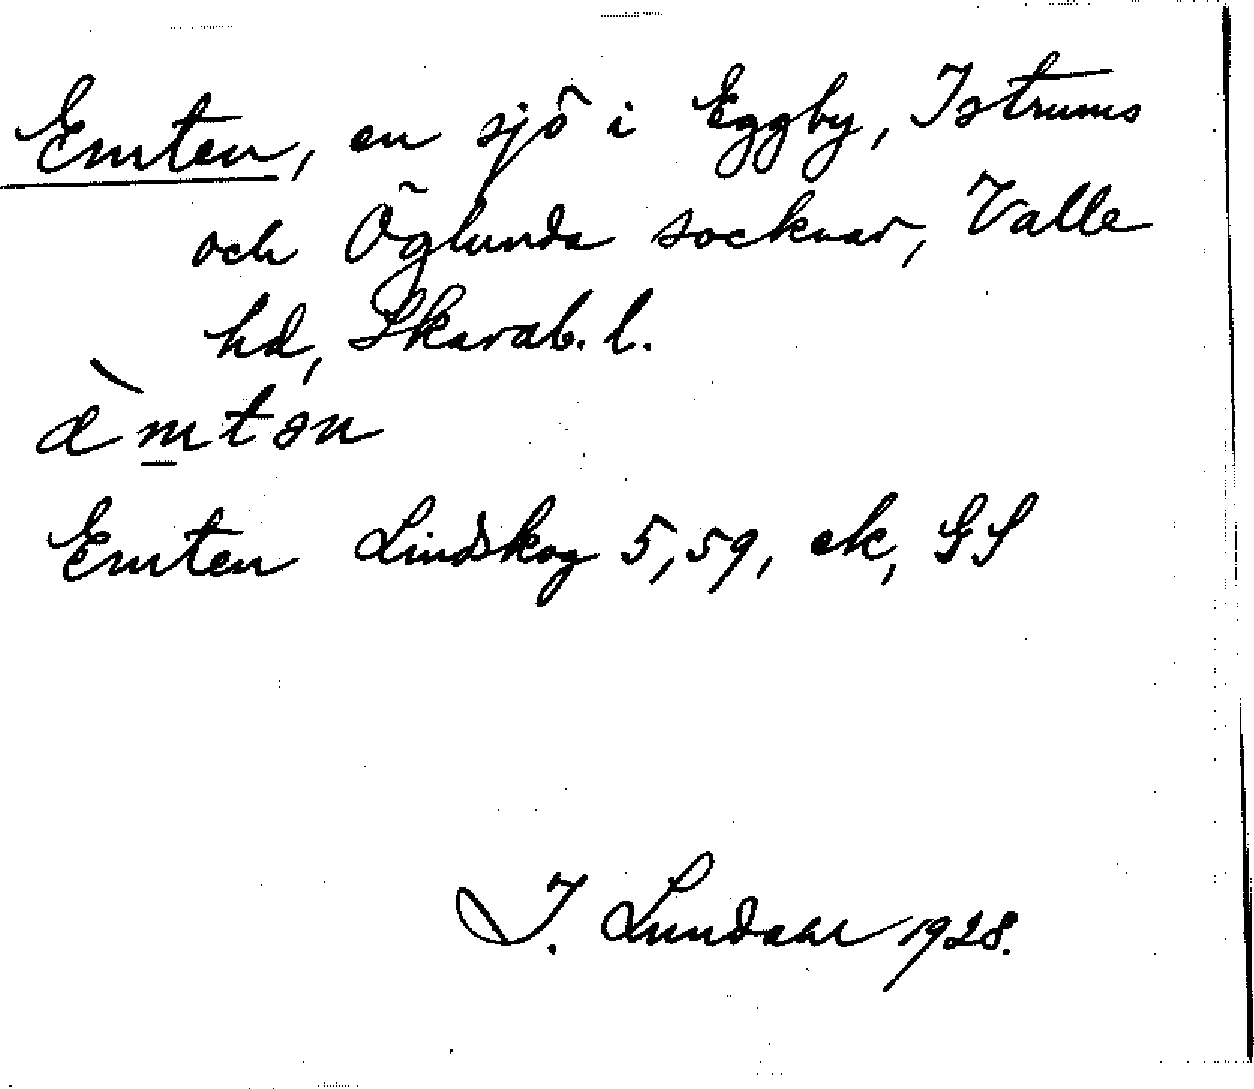 Emten, en sjö i Eggby, Istrums
och Öglunda socknar, Valle
hd, Skarab. l.
æ̀mtən
Emten Lindskog 5,59, ek, GS
I. Lundahl 1928.